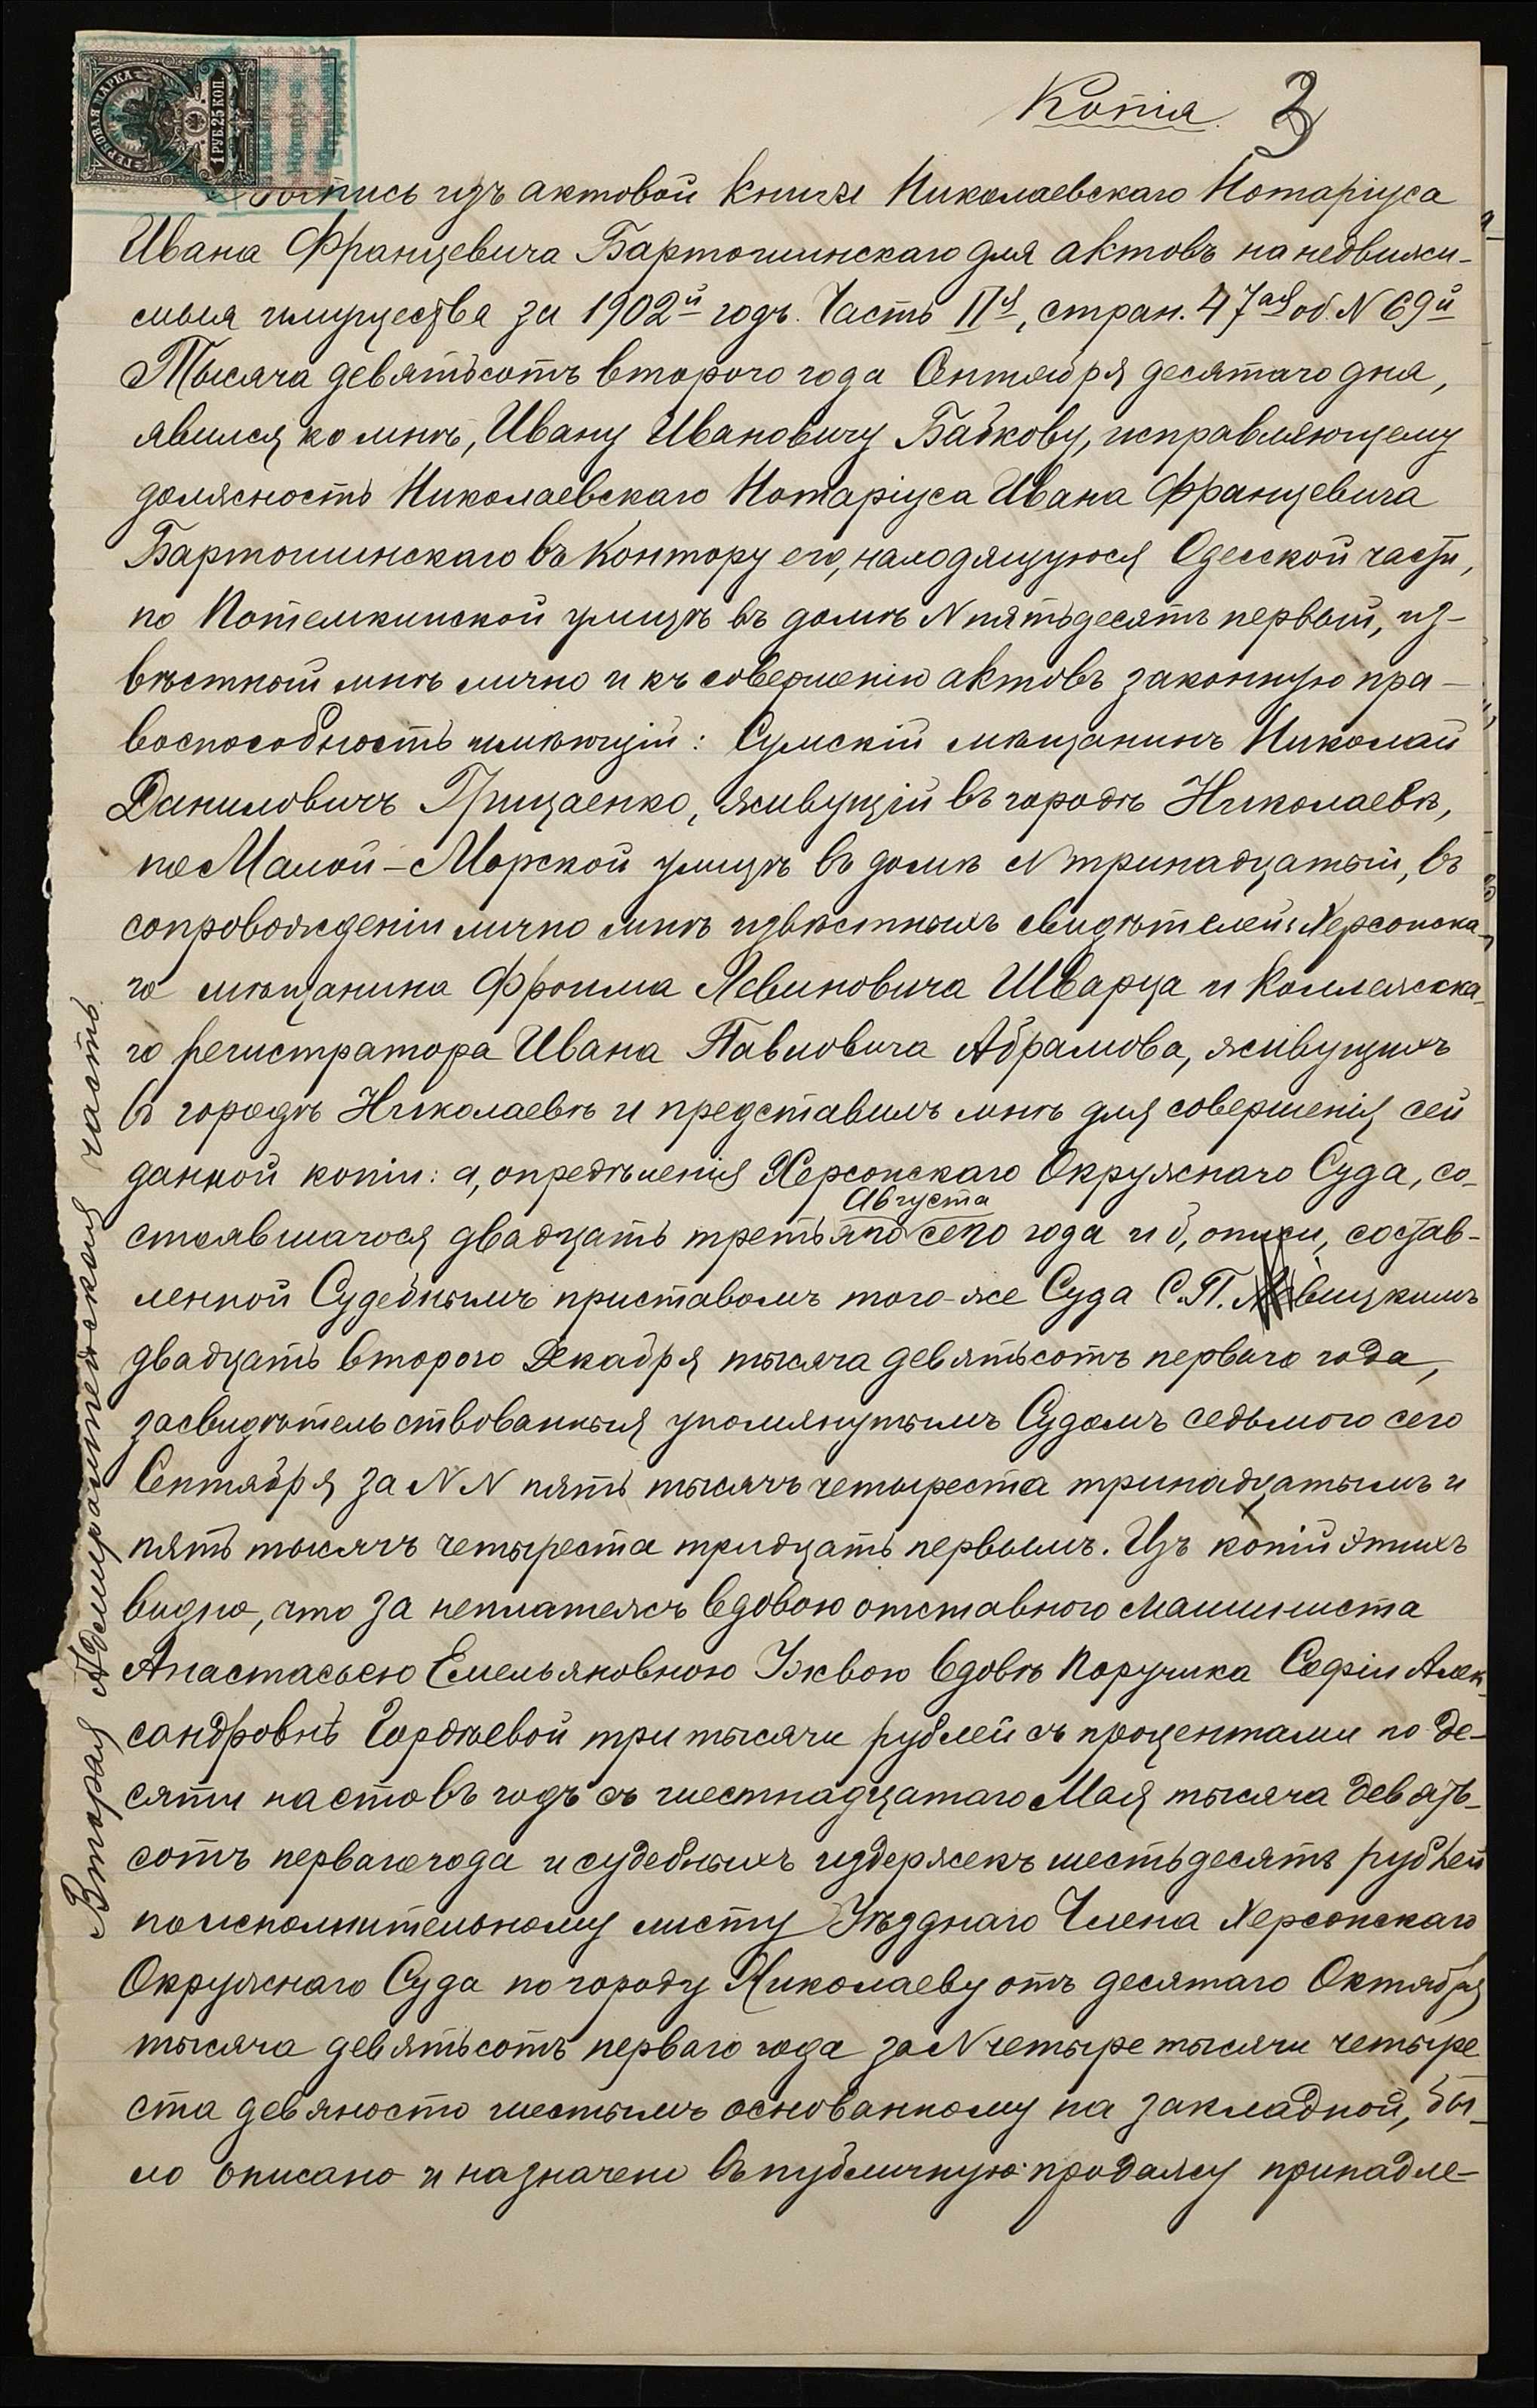 ГЕРБОВАЯ МАРКА
1 РУБ. 25 КОП.
Копія. 3
Выпись изъ актовой книги Николаевскаго Нотаріуса
Ивана Францевича Бартошинскаго для актовъ на недвижи-
мыя имущества за 1902й годъ. Часть IIя, стран. 47ая об. N 69й
Тысяча девятьсотъ второго года Сентября десятаго дня,
явился ко мнѣ, Ивану Ивановичу Бабкову, исправляющему
должность Николаевскаго Нотаріуса Ивана Францевича
Бартошинскаго въ контору его, находящуюся Одесской части,
по Потемкинской улицѣ въ домѣ N пятьдесятъ первый, из-
вѣстный мнѣ лично и къ совершенію актовъ законную пра-
воспособность имѣющій: Сумскій мѣщанинъ Николай
Даниловичъ Грищаенко, живущій въ городѣ Николаевѣ,
по Малой-Морской улицѣ въ домѣ N тринадцатый, въ
сопровожденіи лично мнѣ извѣстныхъ свидѣтелей: Херсонска-
го мѣщанина Фроима Левиновича Шварца и Коллежска-
го регистратора Ивана Павловича Абрамова, живущихъ
въ городѣ Николаевѣ и представилъ мнѣ для совершенія сей
данной копіи: а, опредѣленія Херсонскаго Окружнаго Суда, со-
Августа
стоявшагося двадцать третьяго сего года и б, описи, состав-
ленной Судебнымъ приставомъ того-же Суда С.П. Левицкимъ
двадцать второго Декабря тысяча девятьсотъ перваго года,
засвидѣтельствованныя упомянутымъ Судомъ седьмого сего
Сентября за N N пять тысячъ четыреста тринадцатымъ и
пять тысячъ четыреста тридцать первымъ. Изъ копій этихъ
видно, что за неплатежъ вдовою отставного машиниста
Анастасьею Емельяновною вдовѣ Поручика Софіи Алек-
сандровнѣ Гордѣевой три тысячи рублей съ процентами по де-
сяти на сто въ годъ съ шестнадцатаго Мая тысяча девять-
сотъ перваго года и судебныхъ издержекъ шестьдесятъ рублей
по исполнительному листу Уѣзднаго Члена Херсонскаго
Окружнаго Суда по городу Николаеву отъ десятаго Октября
тысяча девятьсотъ перваго года за N четыре тысячи четыре
ста девяносто шестымъ основанному на закладной, бы-
ло описано и назначено въ публичную продажу принадле-
Вторая Адмиралтейская часть